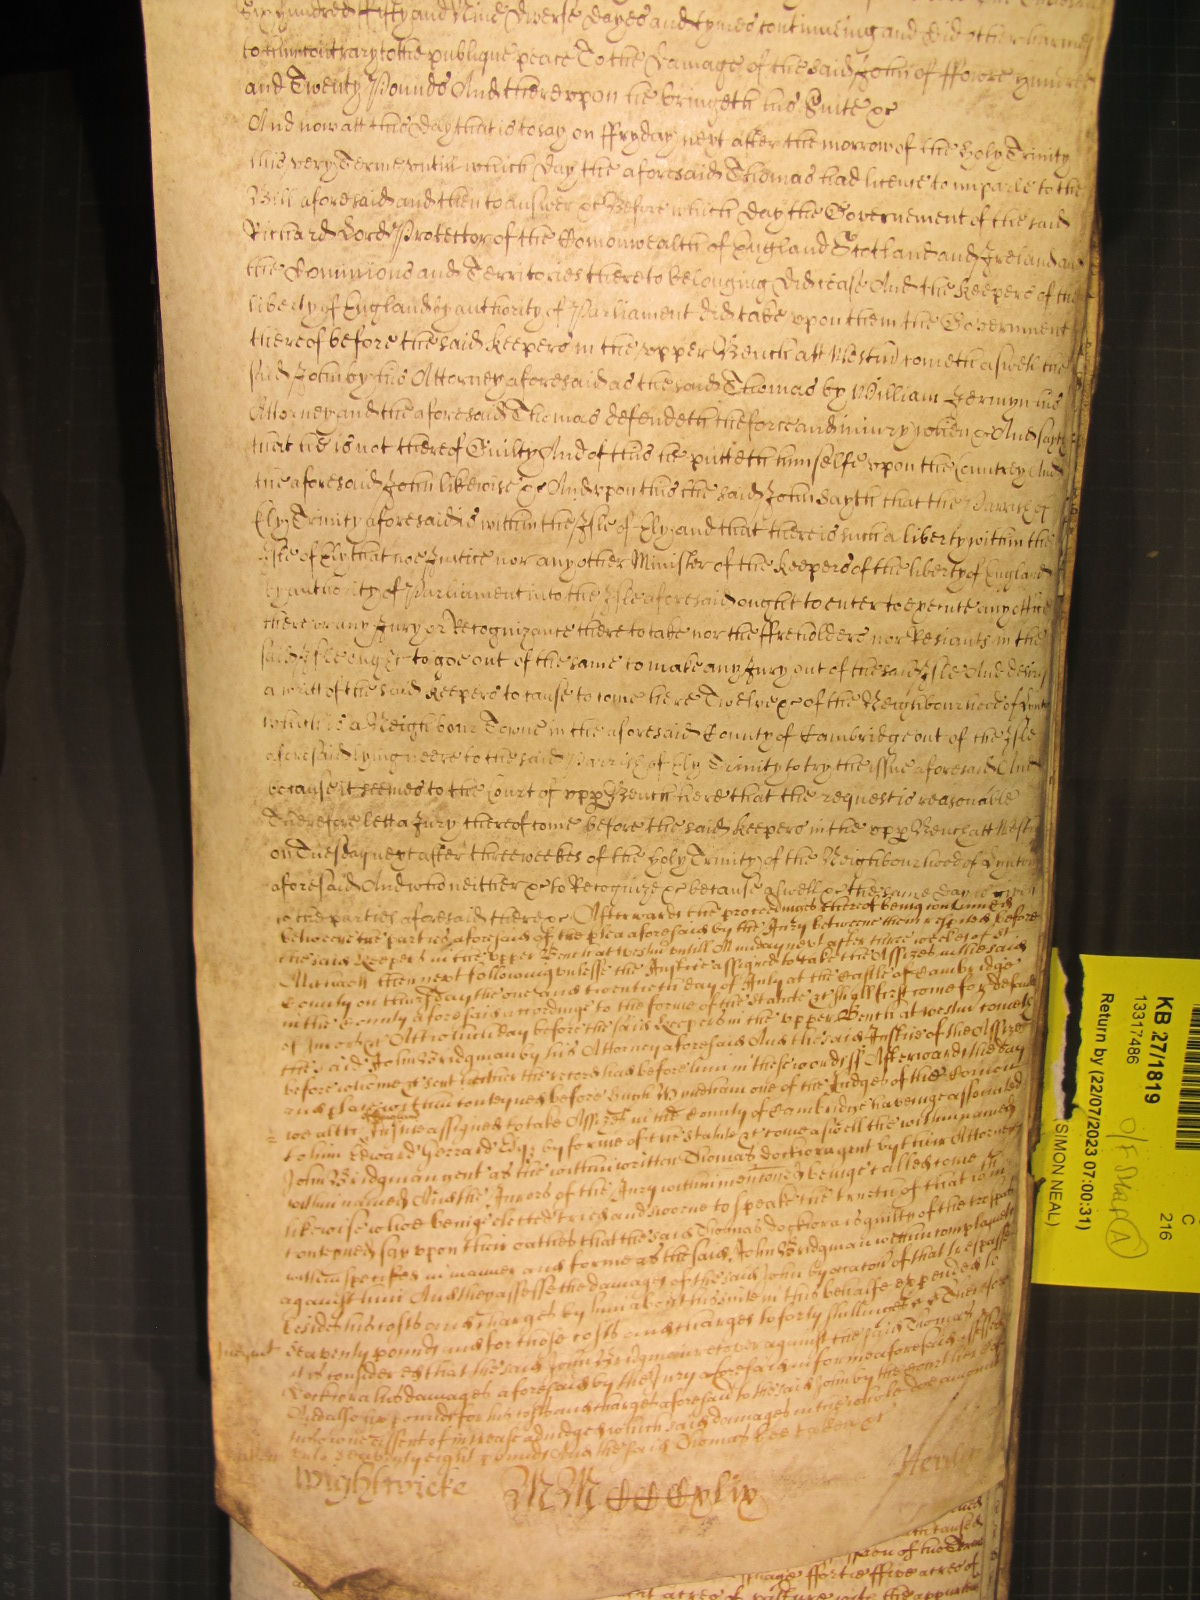 Six hundred fifty and Nine Diverse dayes and tymes continueing and did other harmes
to him contrary to the publique peace To the damage of the said John of ffowre hundred
and Twenty Pounds And thereupon he bringeth his Suite &c
And now att this day that is to say on ffryday next after the morrow of the holy Trinity
this very Terme untill which day the aforesaid Thomas had licence to imparle to the
Bill aforesaid and then to answer &c Before which day the Governement of the said
Richard Lord Protector of the Comonwealth of England Scotland and Ireland and
the Dominions and Territories thereto belonging did cease And the Keepers of the
liberty of England by authority of Parliament did take upon them the Government
thereof before the said Keepers in the upper Bench att Westm cometh aswell the
said John by his Attorney aforesaid as the said Thomas by William Jermyn his
Attorney and the aforesaid Thomas defendeth the force and iniury when &c And sayth
that he is not thereof Guilty And of this he putteth himselfe upon the Countrey And
the aforesaid John likewise &c And upon this the said John sayth that the Parrish of
Ely Trinity aforesaid is within the Isle of Ely and that there is such a liberty within the
Isle of Ely that noe Justice nor any other Minister of the Keepers of the liberty of England
by authority of Parliament into the Isle aforesaid ought to enter to execute any office
there or any Jury or Recognizance there to take nor the ffreeholders nor Resiants in the
said Isle ought to goe out of the same to make any Jury out of the said Isle And desires
a writt of the said Keepers to cause to come here Twelve &c of the Neighbourhood of
which is a Neighbour Towne in the aforesaid County of Cambridge out of the Isle
aforesaid lying neere to the said Parrish of Ely Trinity to try the issue aforesaid And
because it seemes to the Court of upper Bench here that the request is reasonable
Therefore lett a Jury thereof come before the said Keepers in the upper Bench att Westm
on Tuesday next after three weekes of the holy Trinity of the Neighbourhood of
aforesaid And who neither &c to Recognize &c because aswell &c the same day is given
to the parties aforesaid there &c Afterwards the proceedings thereof being continued
betweene the parties aforesaid of the plea aforesaid by the Jury betweene them respited before
the said Keepers in the upper Bench at Westm untill Munday next after three weekes of St
Michaell then next following unlesse the Justice assigned to take the Assizes in the said
County on thursday the one and twentieth day of July at the Castle of Cambridge
in the County aforesaid according to the forme of the statute &c shall first come for default
of Jurors &c Att which day before the said Keepers in the upper Bench at Westm cometh
the said John Bridgman by his Attorney aforesaid And the said Justice of the Assizes
before whome &c sent hether the record had before him in these words ss Afterwards the day
and place within conteyned before Hugh Wyndham one of the Judges of the Comon
wealth Justice assigned to take Assizes in the County of Cambridge haveing associated
to him Edward Gerrard Esqr by forme of the statute &c come aswell the within named
John Bridgman gent as the within written Thomas Dockwra gent by their Attorneys
within named And the Jurors of the Jury within mentioned beinge called come
likewise whoe being elected tried and sworne to speake the trueth of that within
conteyned say upon their oathes that the said Thomas Dockwra is guilty of the trespas
within specified in manner and forme as the said John Bridgman within complayneth
against him And they assesse the damages of the said John by reason of that trespasse
besides his costs and charges by him about his suite in this behalfe expended to
Seaventy pounds and for those costs and charges to forty shillings &c Therefore
it is considered that the said John Bridgman recover against the said Thomas
Dockwra his damages aforesaid by the Jury aforesaid in forme aforesaid assessed
And also six pounds for his costs and charges aforesaid to the said John by the Court here
of increase adiudged which said damages in the whole doe amount
unto seaventy eight pounds And the said Thomas bee taken &c
Wightwicke MMCCCCxlix
KB 27/1819
13317486
Return by (22/07/2023 07:00:31)
SIMON NEAL)
C
216
A